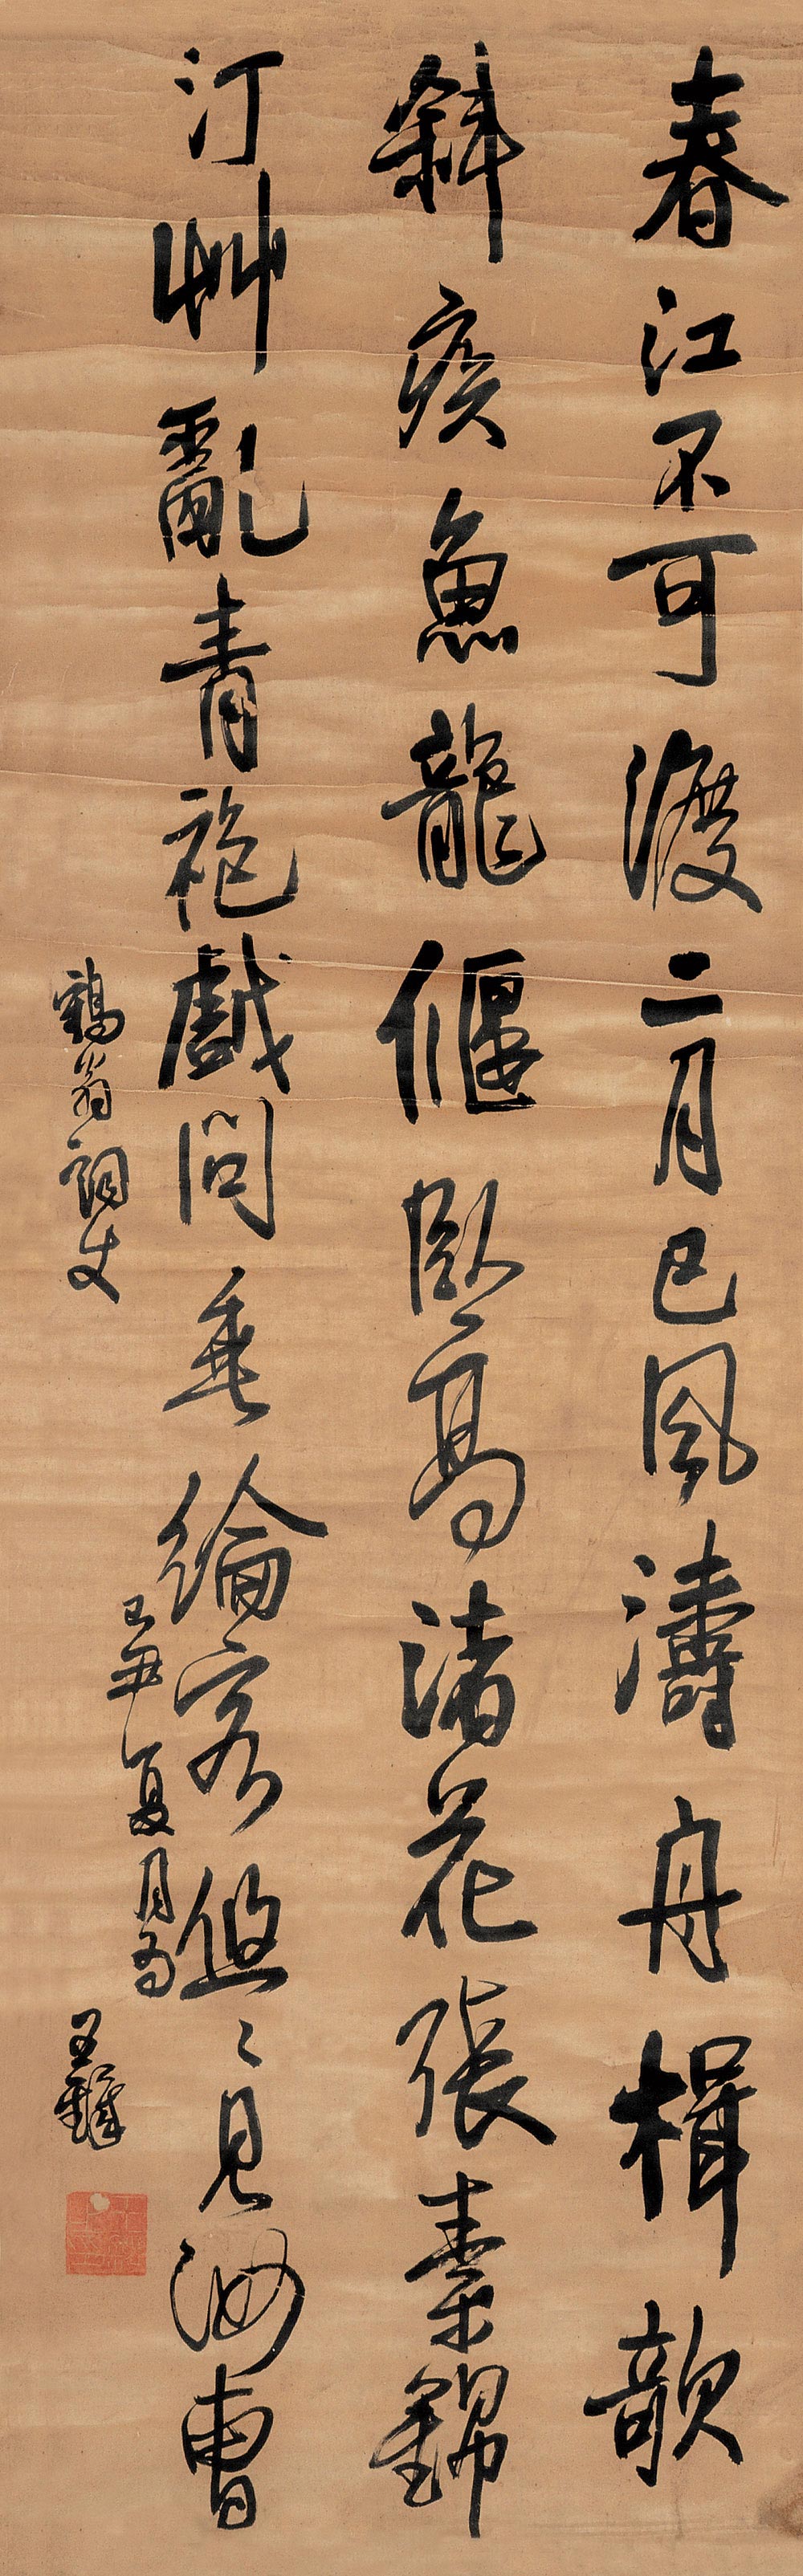 春江不可渡二月已風濤舟楫欹
斜疾魚龍偃臥高渚花張素錦
汀艸亂青袍戲問垂綸客悠〻見汝曹
己丑夏月為
鶴翁詞丈
王鐸